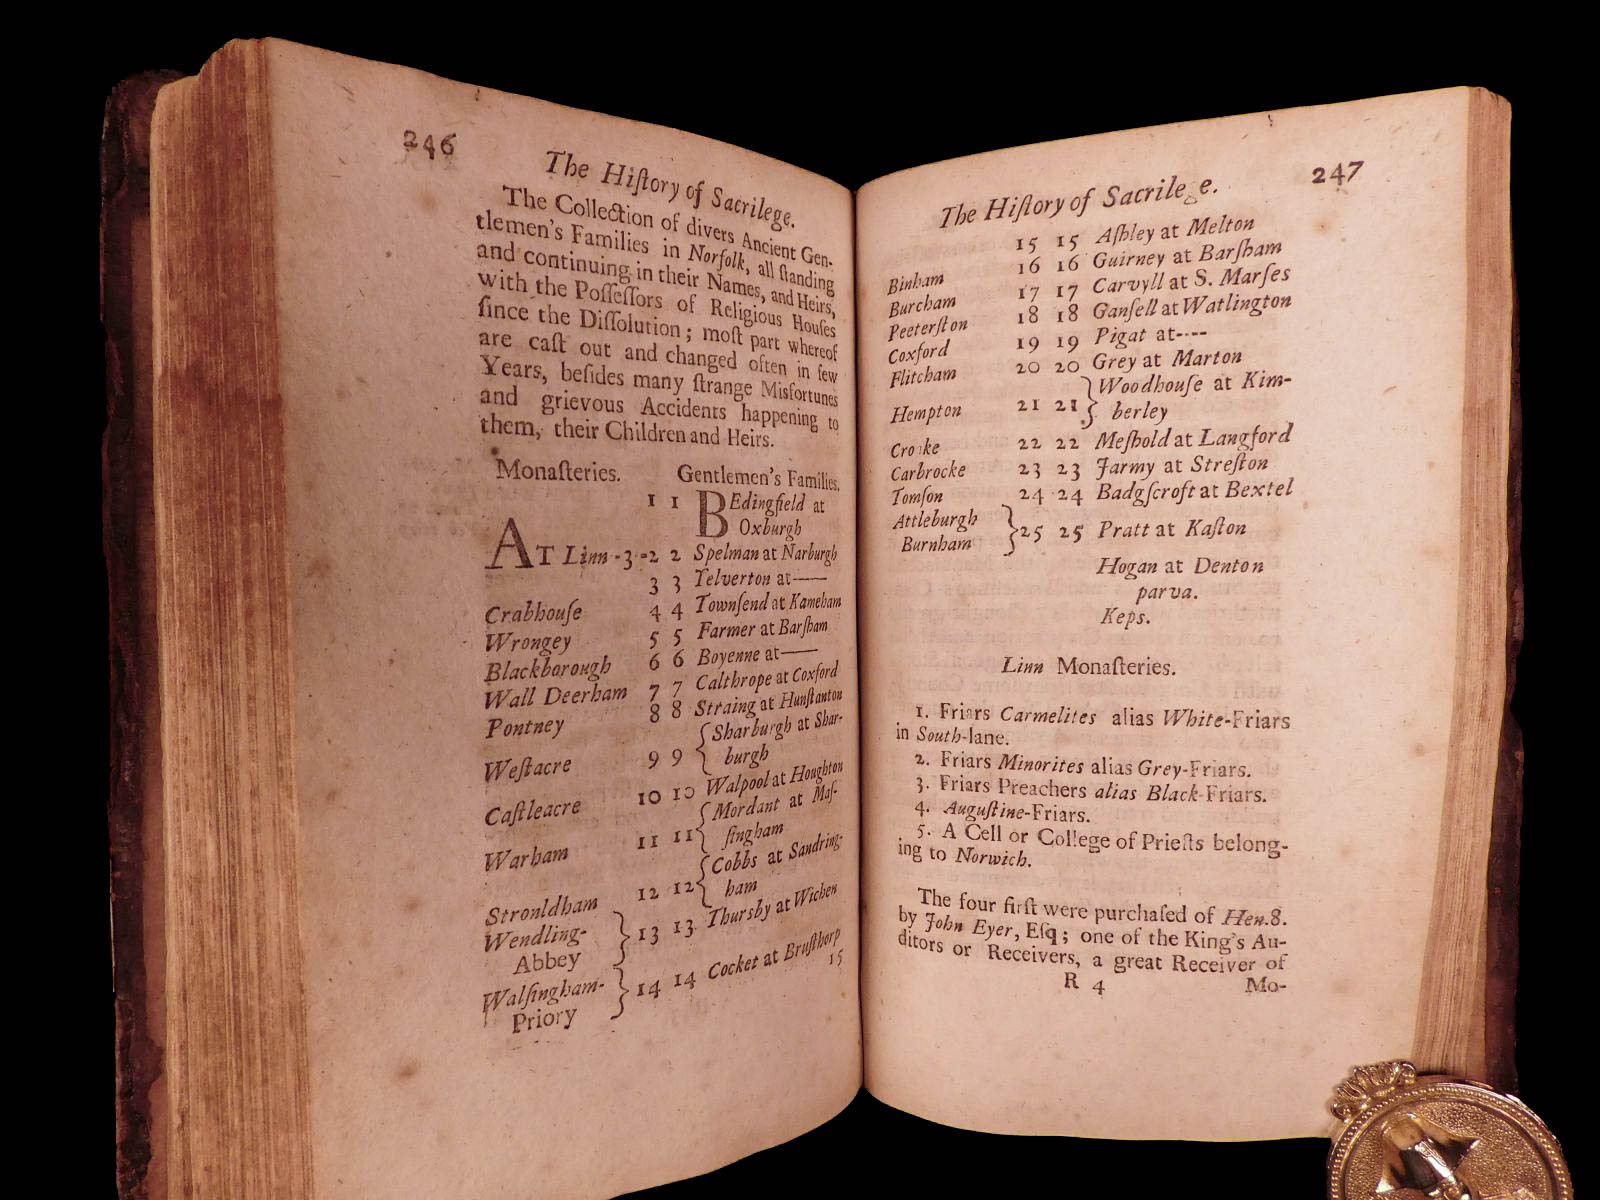 246
The Hiſtory of Sacrilege.
The Collection of divers Ancient Gen-
tlemen's Families in Norfolk, all ſtanding
and continuing in their Names, and Heirs,
with the Poſſeſſors of Religious Houſes
ſince the Diſſolution; moſt part whereof
are caſt out and changed often in few
Years, beſides many ſtrange Misfortunes
and grievous Accidents happening to
them, their Children and Heirs.
Monaſteries. Gentlemen's Families.
1 1 BEdingfield at
Oxburgh
AT Linn-3-2 2 Spelman at Narburgh
3 3 Yelverton at——
Crabhouſe 4 4 Townſend at Kameham
Wrongey 5 5 Farmer at Barſham
Blackborough 6 6 Boyenne at——
Wall Deerham 7 7 Calthrope at Coxford
Pontney 8 8 Straing at Hunſtanton
Weſtacre 9 9 { Sharburgh at Shar-
burgh
Caſtleacre 10 10 Walpool at Houghton
Warham 11 11 { Mordant at Maſ-
ſingham
Stronldham 12 12 { Cobbs at Sandring-
ham
Wendling-
Abbey } 13 13 Thursby at Wichen
Walſingham-
Priory } 14 14 Cocket at Bruſthorp
15
The Hiſtory of Sacrile e. 247
15 15 Aſhley at Melton
Binham 16 16 Guirney at Barſham
Burcham 17 17 Carvyll at S. Marſes
Peeterſton 18 18 Ganſell at Watlington
Coxford 19 19 Pigat at----
Flitcham 20 20 Grey at Marton
Hempton 21 21 } Woodhouſe at Kim-
berley
Cro ke 22 22 Meſhold at Langford
Carbrocke 23 23 Jarmy at Streſton
Tomſon 24 24 Badgſcroft at Bextel
Attleburgh
Burnham } 25 25 Pratt at Kaſton
Hogan at Denton
parva.
Keps.
Linn Monaſteries.
1. Friars Carmelites alias White-Friars
in South-lane.
2. Friars Minorites alias Grey-Friars.
3. Friars Preachers alias Black-Friars.
4. Auguſtine-Friars.
5. A Cell or College of Prieſts belong-
ing to Norwich.
The four firſt were purchaſed of Hen.8.
by John Eyer, Eſq; one of the King's Au-
ditors or Receivers, a great Receiver of
R 4 Mo-